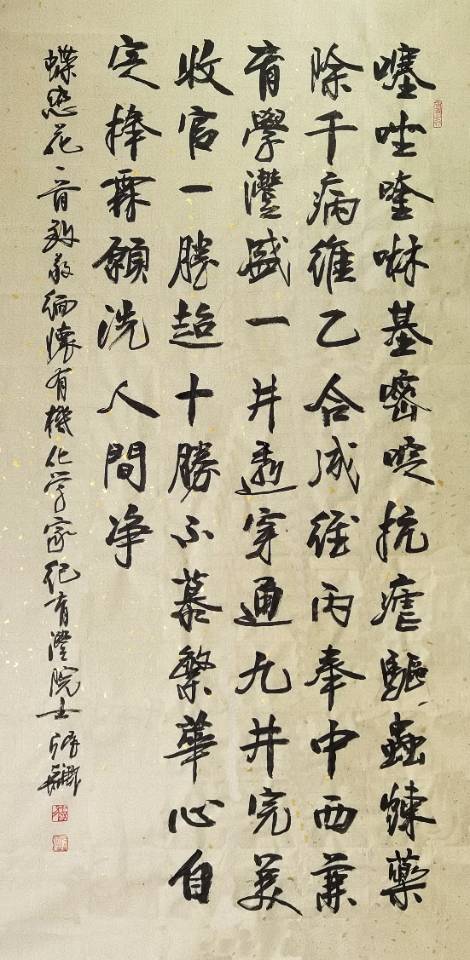 噻唑喹啉基嘧啶抗瘧驅蟲鍊藥
除千病維乙合成維丙奉中西兼
育學灃盛一井透穿通九井完美
收官一勝超十勝不慕繁華心自
定捧霖願洗人間净
蝶恋花一首致敬緬懷有機化学家紀育灃院士